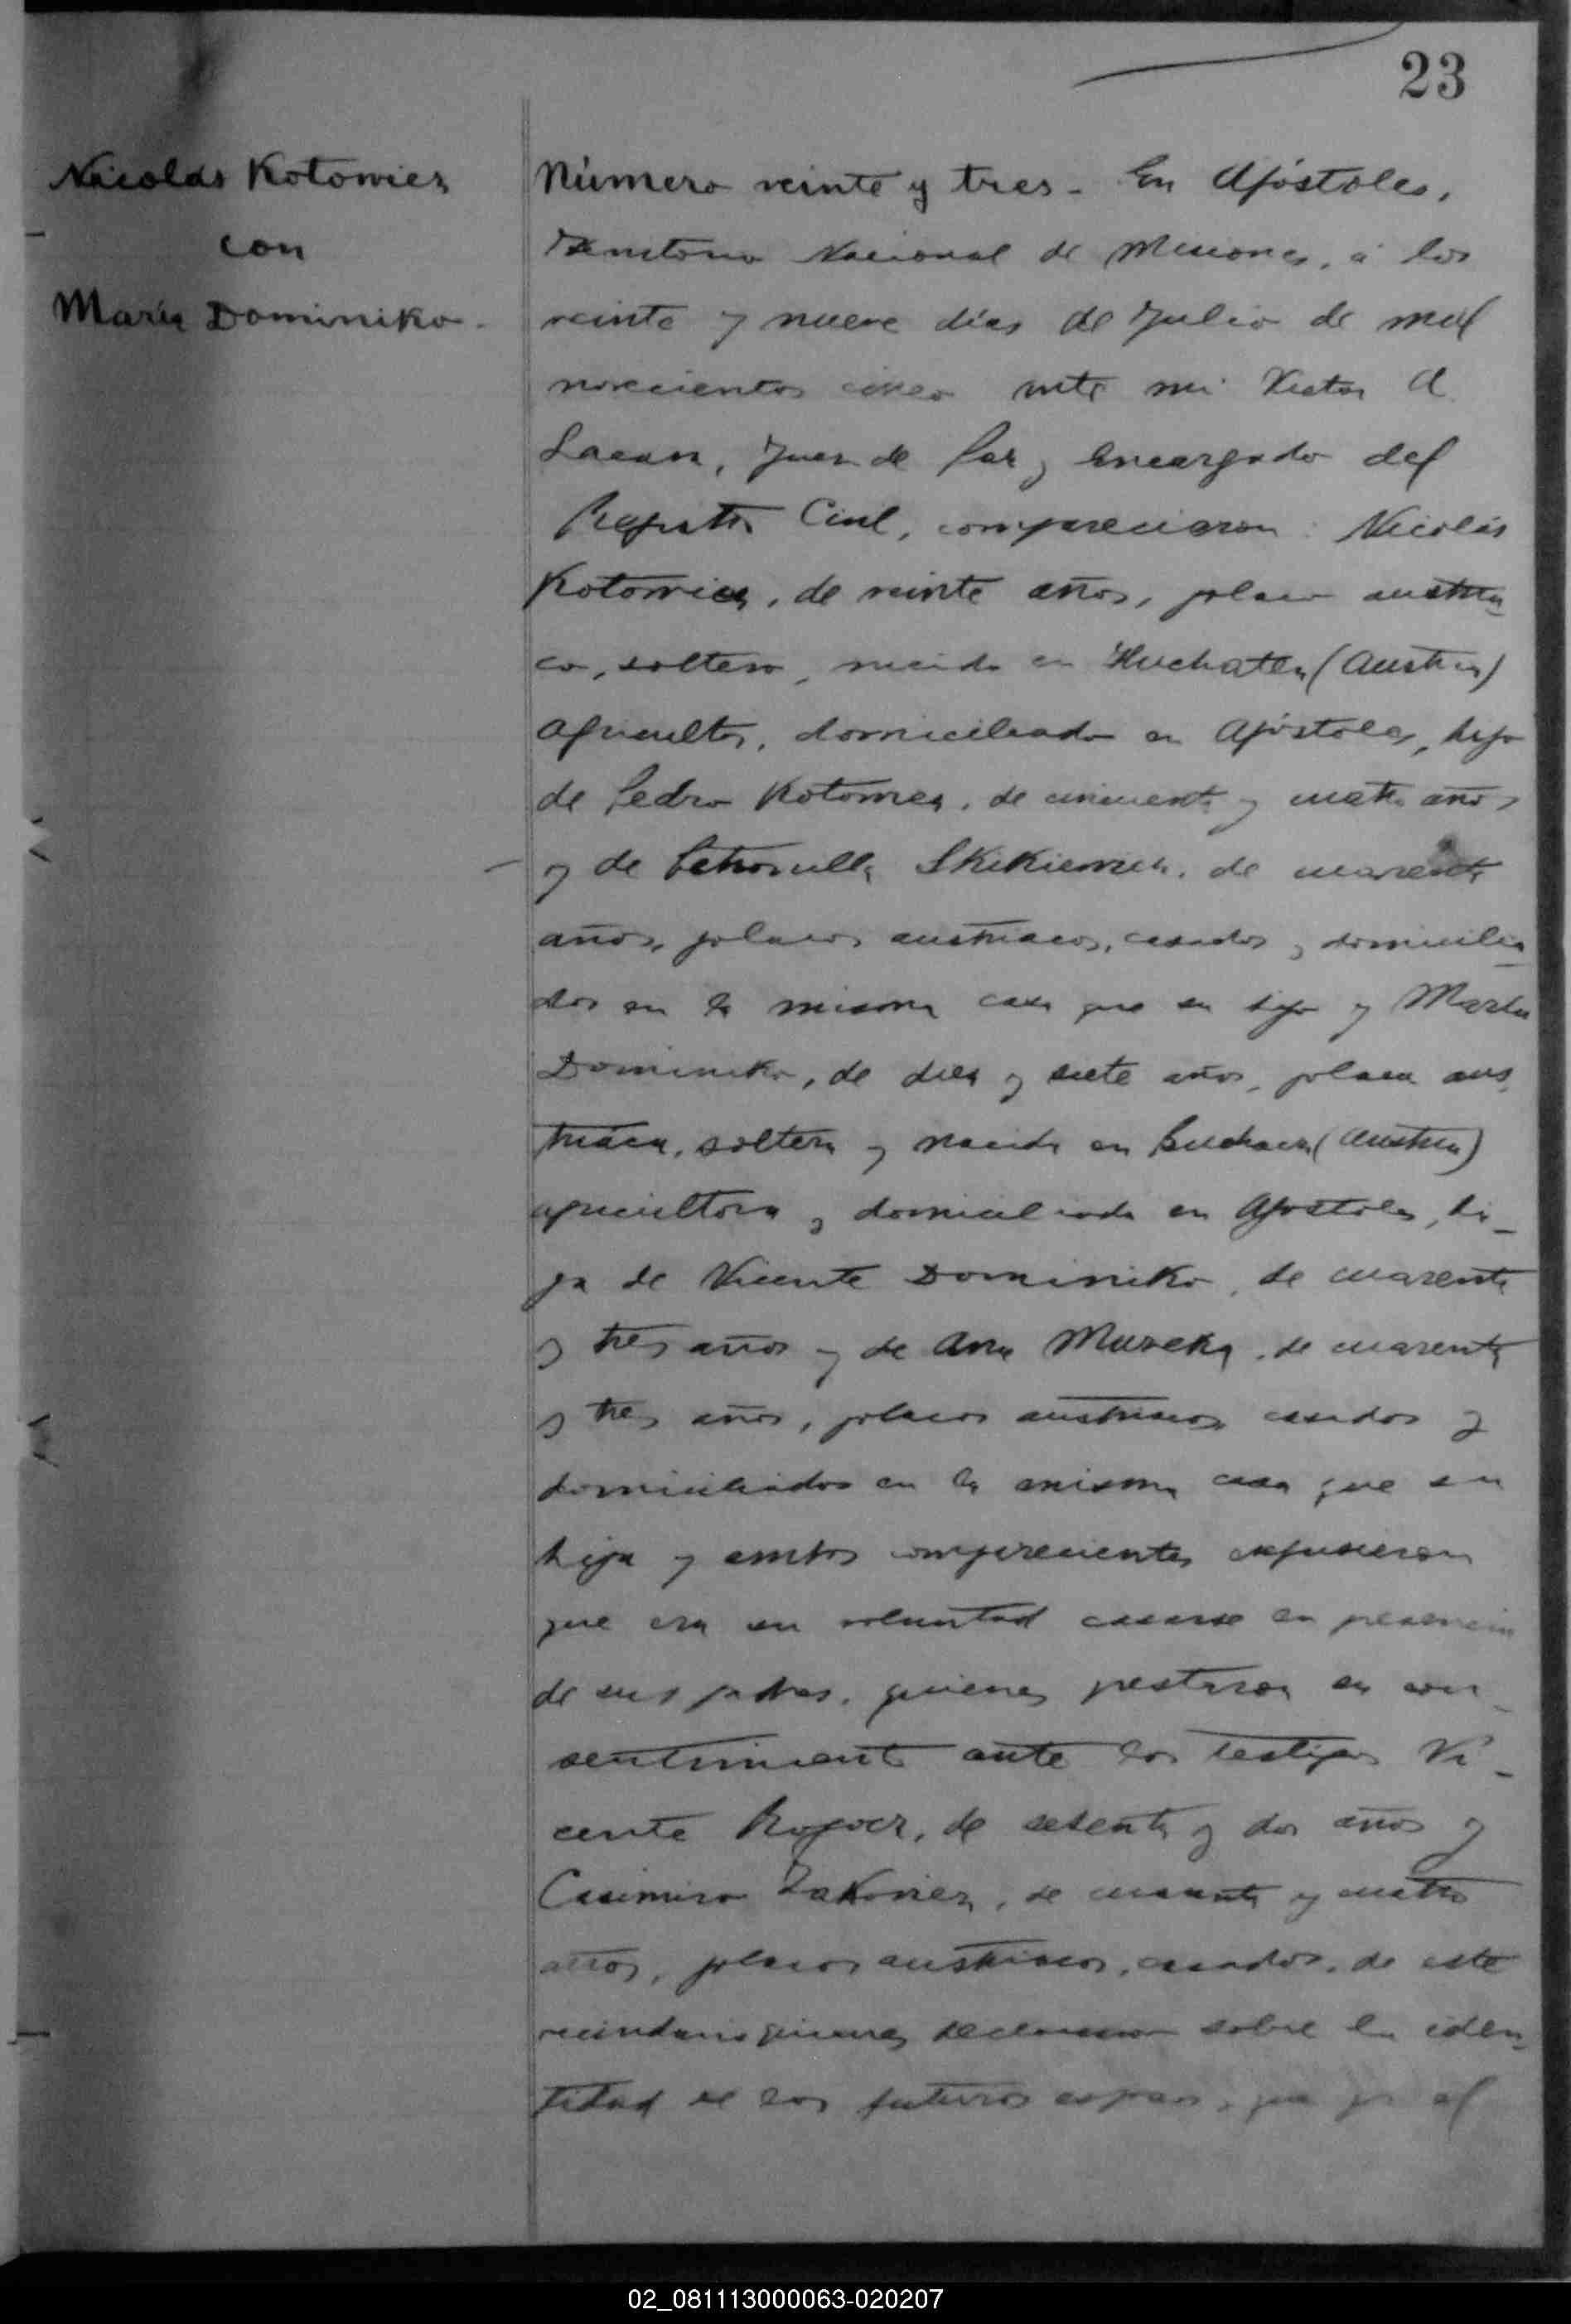 23
Nicolás Kotowicz
con
María Dominiko.
Número veinte y tres - En Apóstoles,
Territorio Nacional de Misiones, á los
veinte y nueve días de Julio de mil
novecientos cinco ante mi Victor A.
Juez de Paz y Encargado del
Registro Civil, comparecieron: Nicolás
Kotowicz, de veinte años, polaco austria
co, soltero, nacido en (Austria)
agricultor, domiciliado en Apóstoles, hijo
de Pedro Kotowicz, de cincuenta y cuatro años
y de Petronella de cuarenta
años, polacos austriacos, casados y domicilia
dos en la misma casa que su hijo y María
Dominiko, de diez y siete años, polaca aus
triaca, soltera y nacida en (Austria)
agricultora y domiciliada en Apostoles, hi-
ja de Vicente Dominiko, de cuarenta
y tres años y de Ana de cuarenta
y tres años, polacos austriacos casados y
domiciliados en la misma casa que su
hija y ambos comparecientes expusieron
que era su voluntad casarse en presencia
de sus padres, quienes prestaron su con-
sentimiento ante los testigos Vi-
cente de setenta y dos años y
Casimiro de cuarenta y cuatro
años, polacos austriacos, casados, de este
vecindario quienes declararon sobre la iden
tidad de los futuros esposos, que yo el
02_081113000063-020207